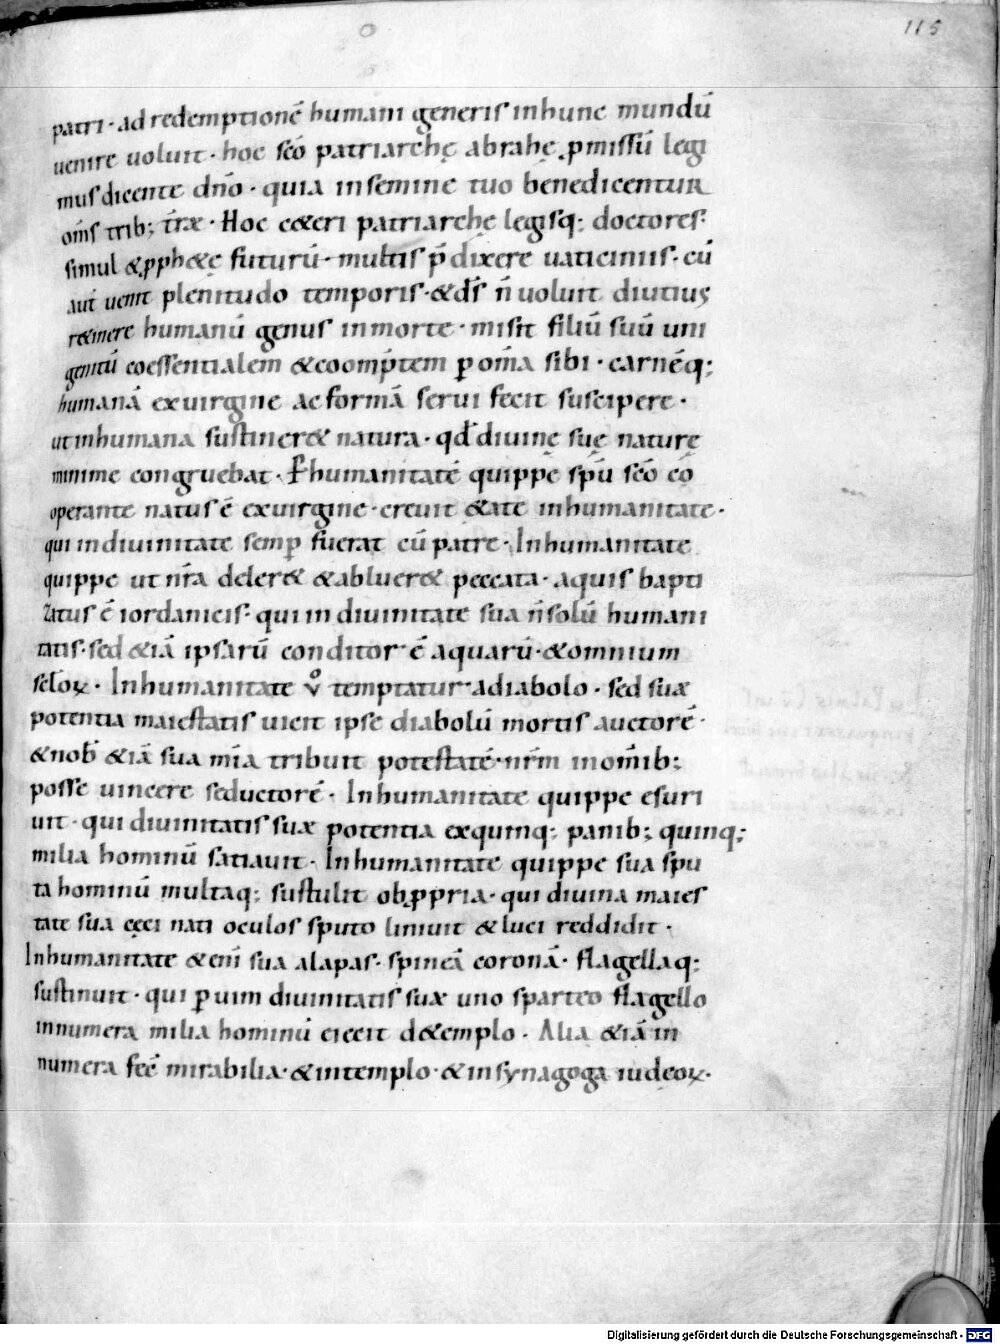 115
patri · ad redemptionē humani generis in hunc mundū
uenire uoluit · hoc sc̄o patriarchę abrahę ꝓmissū legi
mus dicente dn̄o · quia in semine tuo benedicentur
om̄s trib; t̄ræ · Hoc c&eri patriarchę legisq; doctores ·
simul & ꝓph&ę futurū · multis p̄dixere uaticiniis · cū
aut̄ uenit plenitudo temporis · & d̄s n̄ uoluit diutius
r&inere humanū genus in morte · misit filiū suū uni
genitū coessentialem & coomp̄tem ꝑ om̄a sibi · carnēq;
humanā ex uirgine ac formā serui fecit suscipere ·
ut in humana sustiner& natura · qđ diuinę suę naturę
minime congruebat · Ꝑ humanitatē quippe sp̄u sc̄o co
operante natus ē ex uirgine · creuit & ate in humanitate ·
qui in diuinitate semꝑ fuerat cū patre · In humanitate
quippe ut nr̄a deler& & abluer& peccata · aquis bapti
zatus ē iordanicis · qui in diuinitate sua n̄ solū humani
tatis · sed &iā ipsarū conditor ē aquarū · & omnium
sc̄loꝝ · In humanitate v̊ temptatur a diabolo · sed suæ
potentia maiestatis uicit ipse diabolū mortis auctorē ·
& nob̄ &iā sua mīa tribuit potestatē · nr̄m in om̄ib;
posse uincere seductorē · In humanitate quippe esuri
uit · qui diuinitatis suæ potentia ex quinq; panib; quinq;
milia hominū satiauit · In humanitate quippe sua spu
ta hominū multaq; sustulit obꝓpria · qui diuina maies
tate sua cęci nati oculos sputo liniuit & luci reddidit ·
In humanitate &eni sua alapas · spineā coronā · flagellaq;
sustinuit · qui ꝑ uim diuinitatis suæ uno sparteo flagello
innumera milia hominū eiecit de templo · Alia &iā in
numera fec̄ mirabilia · & in templo · & in synagoga iudeoꝝ ·
Digitalisierung gefördert durch die Deutsche Forschungsgemeinschaft - DFG